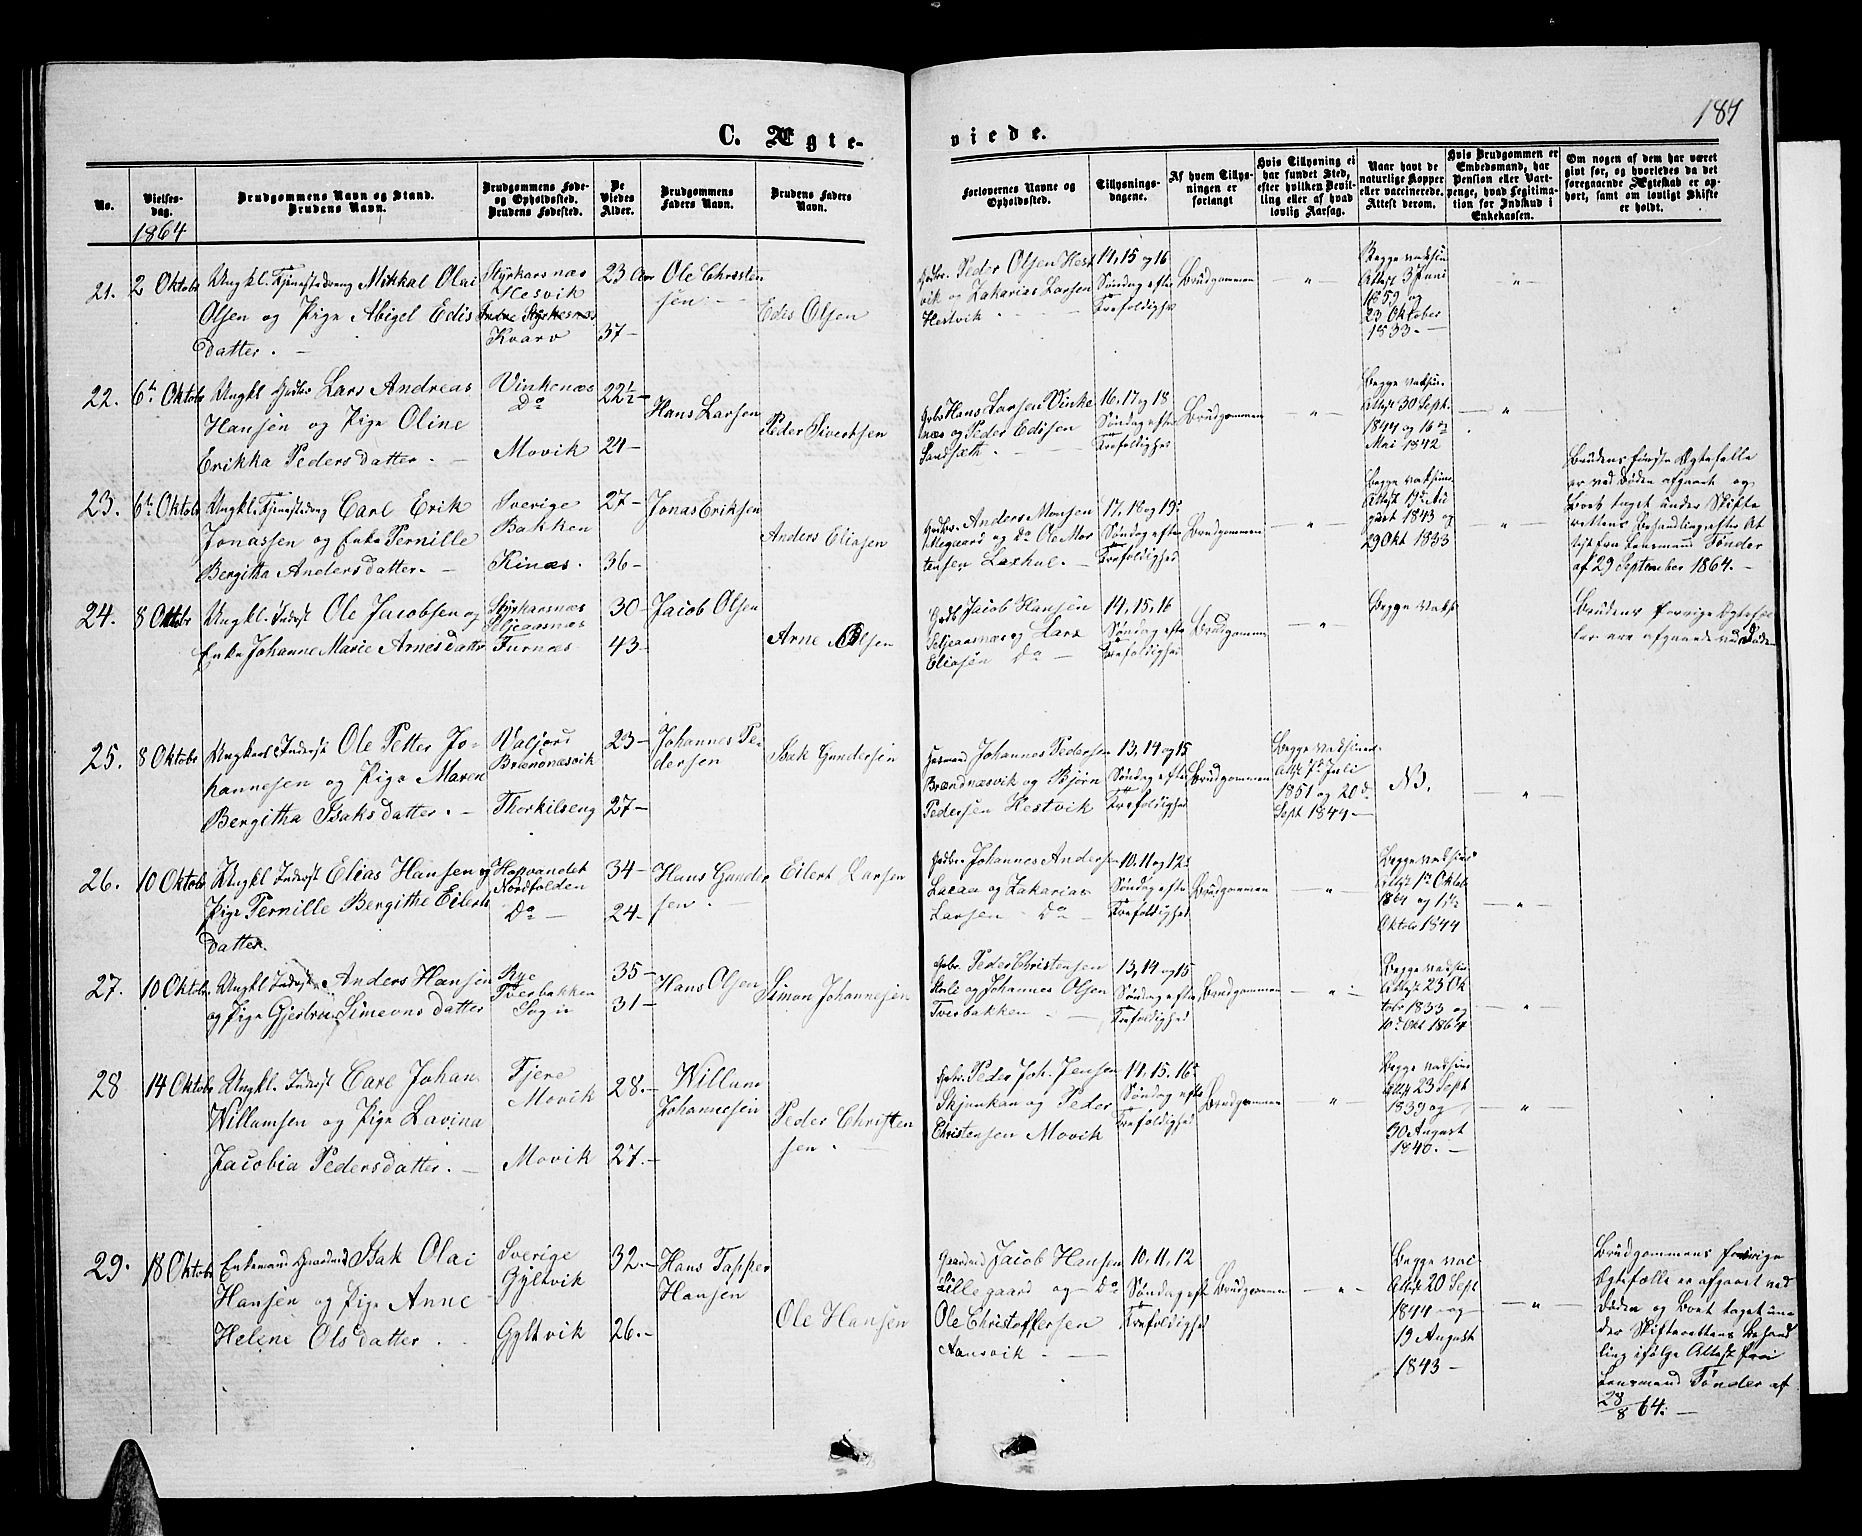 187
C. Ægte-
viede.
No.
Vielses-
dag.
1864
Brudgommens Navn og Stand.
Brudens Navn.
Brudgommens Føde-
og Opholdssted.
Brudens Fødested.
De
Viedes
Alder.
Brudgommens
Faders Navn.
Brudens Faders
Navn.
Forlovernes Navne og
Opholdssted.
Tillysnings-
dagene.
Af hvem Tillys-
ningen er
forlangt
Hvis Tillysning ei
har fundet Sted,
efter hvilken Bevil-
ling eller af hvad
lovlig Aarsag.
Naar havt de
naturlige Kopper
eller vaccinerede.
Attest derom.
Hvis Brudgommen er
Embedsmand, har
Pension eller Vart-
penge, hvad Legitima-
tion for Indskud i
Enkekassen.
Om nogen af dem har været
gift før, og hvorledes da det
foregaaende Ægteskab er op-
hørt, samt om lovligt Skifte
er holdt.
21. 2 Oktobr
Ungkl. Tjenestedreng Mikkal Olai
Olsen og Pige Abigel Edis
datter. -
Styrkarsnæs
Hesvik
Indre Styrkesnæs
Kvarv
23 Aar
37-
Ole Christen
sen -
Edis Olsen
Gdbr. Peder Olsen Hest
vik og Zakarias Larsen
Hestvik
14, 15 og 16
Søndag efter
Trefoldighed
Brudgommen
"
Begge vaksin
Attest 3 Juni
1859 og
23 Oktober
1833. -
"
22. 6te Oktobr
Ungkl Gdbr Lars Andreas
Hansen og Pige Oline
Erikka Pedersdatter. -
Vinkenæs
Do
Movik
22½-
24-
Hans Larsen
Peder Sivertsen
Gdbr Hans Larsen Vinke
næs og Peder Edisen
Sandsæth. -
16, 17 og 18
Søndag efter
Trefoldighed
Brudgommen
"
Begge vaksin.
Attest 30 Sept.
1844 og 16de
Mai 1842
"
23. 6te Oktobr
Ungkl. Tjenestedreng Carl Erik
Jonassen og Enke Pernille
Bergitha Andersdatter. -
Sverige
Bakken
Kinæs.
27-
36-
Jonas Eriksen
Anders Eliasen
Gdbr. Anders Monsen
Lillegaard og Do Ole Mor
tensen Laxhul. -
17, 18 og 19de
Søndag efter
Trefoldighed
Brudgommen
"
Begge vaksin.
Attest 19de Au
gust 1843 og
29 Okt 1833
"
Brudens første Ægtefælle
er ved Døden afgaaet og
Boet taget under Skifte
rettens Behandling efter At
test fra Lensmann Tønder
af 29 September 1864. -
24. 8 Oktobr
Ungkl. Inderst Ole Jacobsen og
Enke Johanne Marie Arnesdatter
Styrkarsnæs
Seljeaasnæs
Furnæs
30-
43-
Jacob Olsen
Arne Olsen
Gdb Jacob Hansen
Seljeaasnæs og Lars
Eliasen Do -
14, 15, 16
Søndag efter
Trefoldighed
Brudgommen
"
Begge vaks
Brudens forrige Ægtefæl
ler ere afgaaede ved Døden
25. 8 Oktobr
Ungkarl Inderst Ole Petter Jo-
hannesen og Pige Maren
Bergitha Isaksdatter. -
Valjord
Brændnæsvik
Thorkilseng
23-
27-
Johannes Pe
dersen
Isak Gundersen
Husmand Johannes Pedersen
Brændnæsvik og Bjørn
Pedersen Hestvik
13, 14 og 15
Søndag efter
Trefoldighed
Brudgommen
Begge vaksiner.
Attest 7de Juli
1851 og 20de
Sept 1844 -
"
26. 10 Oktobr
Ungkl Inderst Elias Hansen og
Pige Pernille Bergithe Eilerts
datter
Hopvandet
Nordfolden
Do -
34-
24-
Hans Gunder
sen. -
Eilert Larsen
Gdbr. Johannes Andersen
Lacaa og Zakarias
Larsen Do -
10, 11 og 12te
Søndag efter
Trefoldighed
Brudgommen
"
Begge vaksin
Attest 1ste Oktobr
1864 og
Oktobr 1844
"
27. 10 Oktobr
Ungkl Inderst Anders Hansen
og Pige Gjertru Simeonsdatter
Rye
Tverbakken
Sogn
35-
31-
Hans Olsen
Simon Johannesen
Gdbr. Peder Christensen
og Johannes Olsen
Tverbakken. -
13, 14 og 15
Søndag efter
Trefoldighed
Brudgommen
"
Begge vaksin
Attest 23 Ok
tobr 1833 og
10de Okt 1864
"
28 14 Oktobr
Ungkl. Inderst Carl Johan
Willumsen og Pige Lavina
Jacobia Pedersdatter. -
Tjere
Movik
Movik
28.-
27.-
Willum
Johannesen
Peder Christen
sen. -
Gdbr. Peder Joh. Jensen
Skjunkan og Peder
Christensen Movik
14, 15, 16de
Søndag efter
Trefoldighed
Brudgommen
"
Begge vaksin
Attest 23 Sept
1839 og
30 August
1840. -
"
29. 18 Oktobr
Enkemand Gaardmd Isak Olai
Hansen og Pige Anne
Helene Olsdatter.
Sverige
Gyltvik
Gyltvik
32.-
26.-
Hans Tapper
Hansen
Ole Hansen
Gaardmd Jacob Hansen
Lillegaard og Do
Ole Christoffersen
Aansvik -
10, 11, 12
Søndag eft
Trefoldighed
Brudgommen
"
Begge vac.
Attest 20 Sept
1844 og
19 August
1843 -
"
Brudgommens forrige
Ægtefælle er afgaaet ved
Døden og Boet taget un
der Skifterettens Behand
ling ifølge Attest fra
Lensmand Tønder af
28/8 64. -